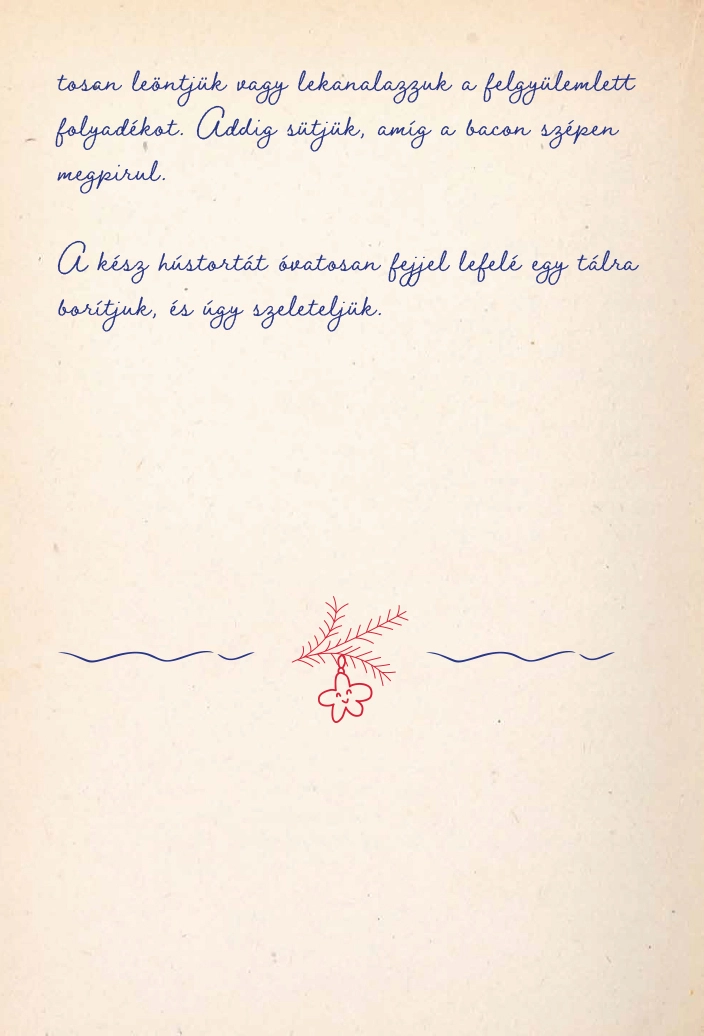 tosan leöntjük vagy lekanalazzuk a felgyülemlett
folyadékot. Addig sütjük, amíg a bacon szépen
megpirul.
A kész hústortát óvatosan fejjel lefelé egy tálra
borítjuk, és úgy szeleteljük.